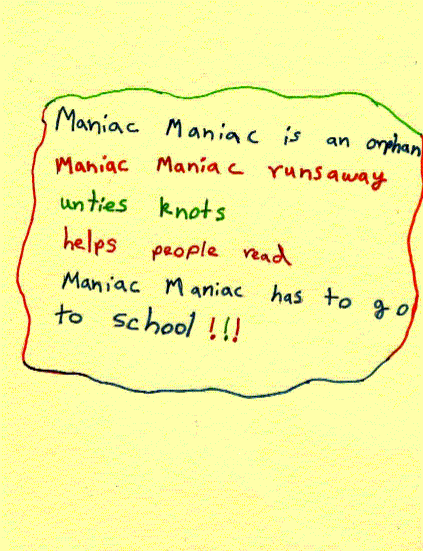 Maniac Maniac is an orphan
Maniac Maniac runsaway
unties knots
helps people read
Maniac Maniac has to go
to school!!!